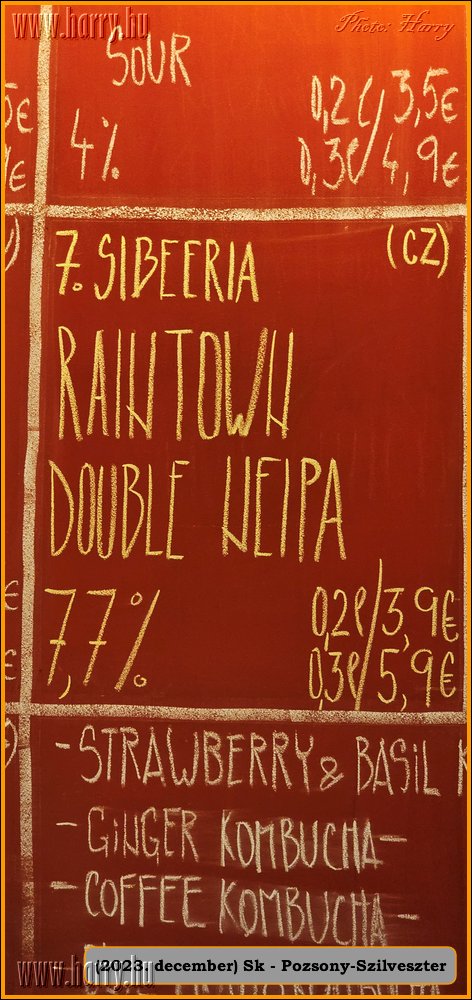 www.harry.hu
Photo: Harry
SOUR
4%
0,2l/3,5€
0,3l/4,9€
7. SIBEERIA (CZ)
RAINTOWN
DOUBLE NEIPA
7,7%
0,2l/3,9€
0,3l/5,9€
- STRAWBERRY & BASIL
- GINGER KOMBUCHA -
- COFFEE KOMBUCHA -
www.harry.hu
(2023. december) Sk - Pozsony-Szilveszter